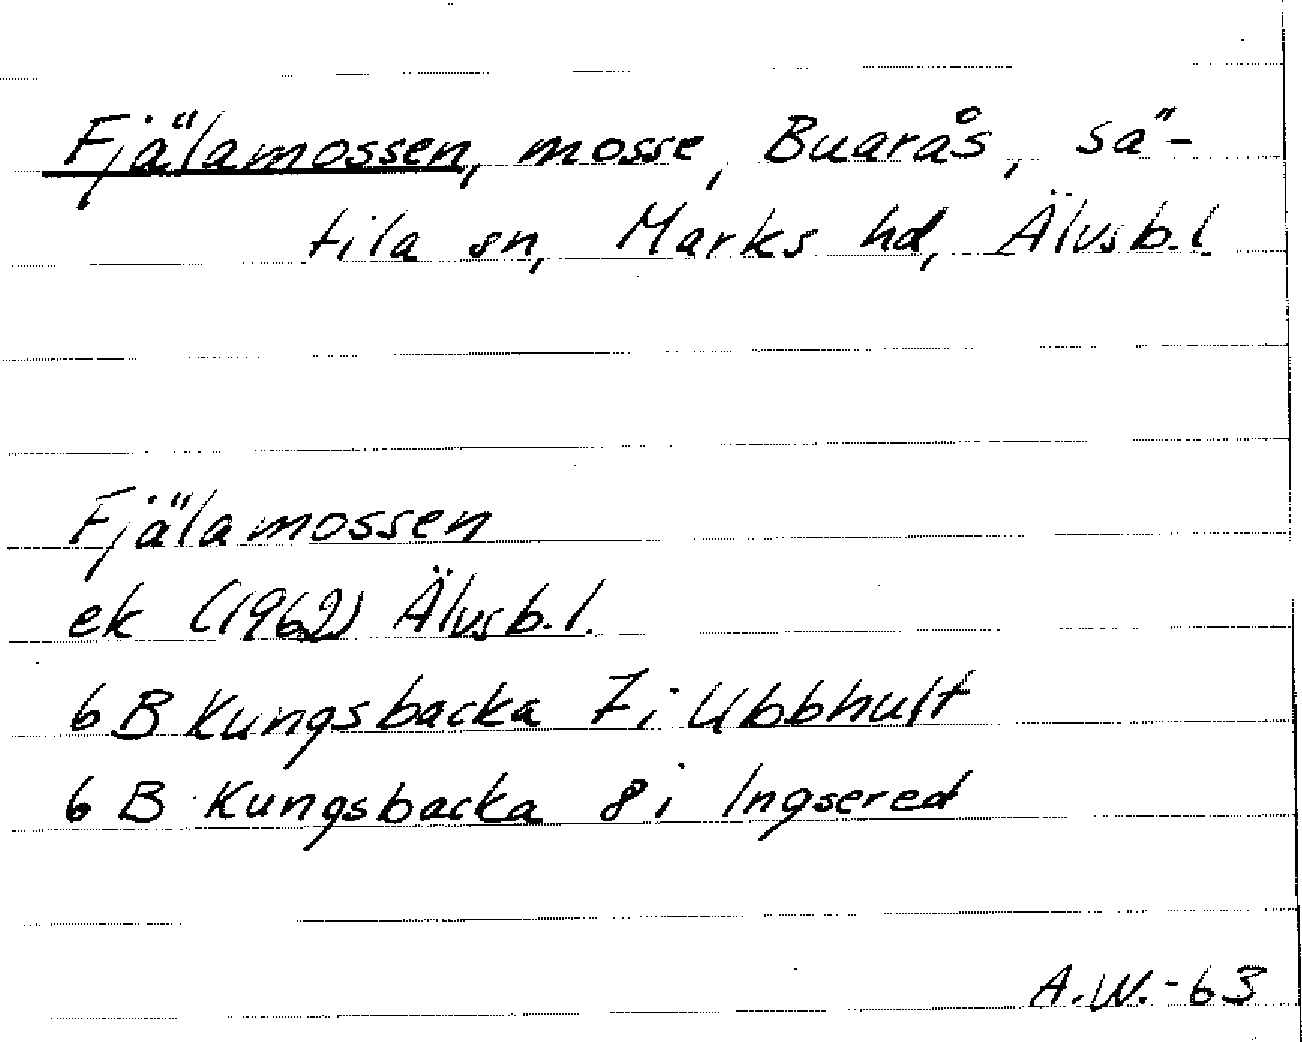 Fjälamossen, mosse, Buarås, Sä-
tila sn, Marks hd, Älvsb.l.
Fjälamossen
ek (1962) Älvsb.l.
6 B Kungsbacka 7i Ubbhult
6 B Kungsbacka 8i Ingsered
A.W.-63